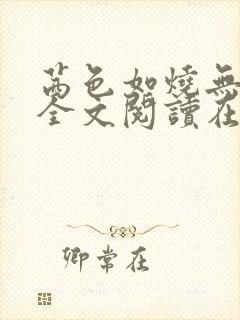 茜色如燒無
全文閱讀在
卿常在